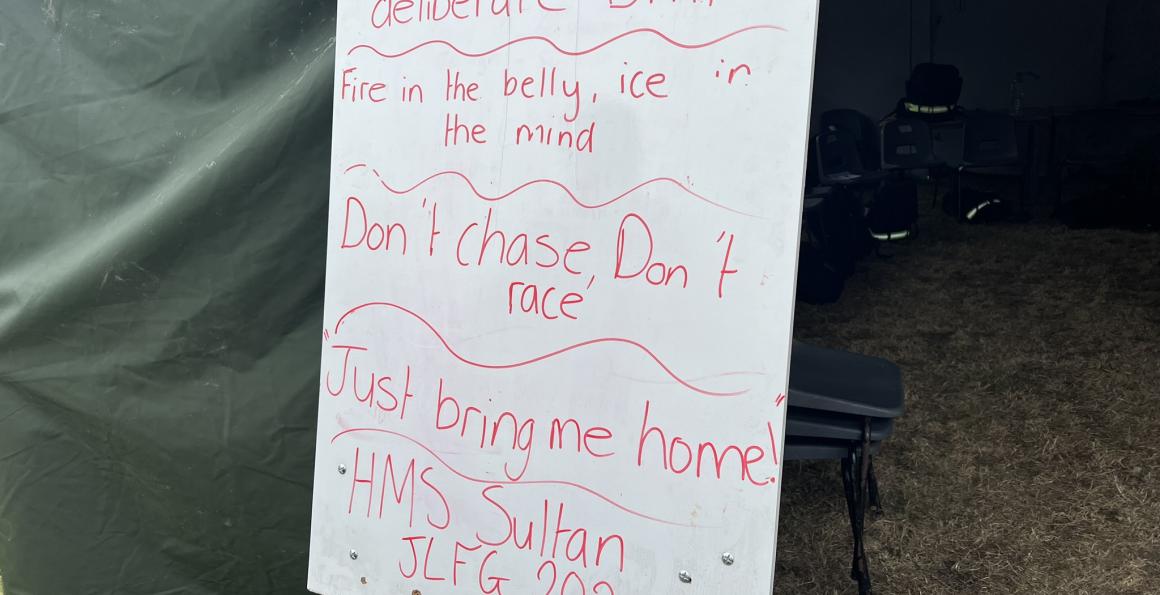 deliberate
Fire in the belly, ice in
the mind
Don't chase, Don't
race
"Just bring me home!"
HMS Sultan
JLFG 202